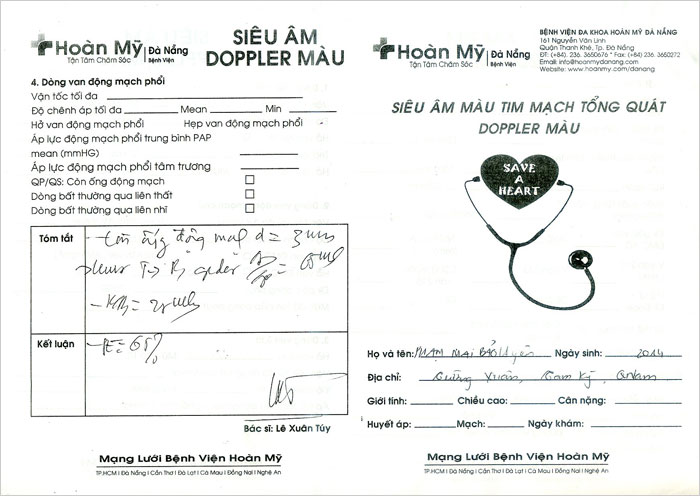 Hoàn Mỹ Đà Nẵng
Tận Tâm Chăm Sóc Bệnh Viện
SIÊU ÂM
DOPPLER MÀU
4. Dòng van động mạch phổi
Vận tốc tối đa
Độ chênh áp tối đa Mean Min
Hở van động mạch phổi Hẹp van động mạch phổi
Áp lực động mạch phổi trung bình PAP
mean (mmHG)
Áp lực động mạch phổi tâm trương
QP/QS: Còn ống động mạch
Dòng bất thường qua liên thất
Dòng bất thường qua liên nhĩ
Tóm tắt
- Còn ống động mạch d = 3 mm
Kết luận
Bác sĩ: Lê Xuân Túy
Mạng Lưới Bệnh Viện Hoàn Mỹ
TP.HCM I Đà Nẵng I Cần Thơ I Đà Lạt I Cà Mau I Đồng Nai I Nghệ An
Hoàn Mỹ Đà Nẵng
Tận Tâm Chăm Sóc Bệnh Viện
BỆNH VIỆN ĐA KHOA HOÀN MỸ ĐÀ NẴNG
161 Nguyễn Văn Linh
Quận Thanh Khê, Tp. Đà Nẵng
ĐT: (+84) 236. 3650676 * Fax: (+84) 236. 3650272
Email: info@hoanmydanang.com
Website: www.hoanmy.com/danang
SIÊU ÂM MÀU TIM MẠCH TỔNG QUÁT
DOPPLER MÀU
SAVE
A
HEART
Họ và tên: PHẠM MAI BẢO Uyên Ngày sinh: 2014
Địa chỉ: Xuân, Tam Kỳ, QNam
Giới tính: Chiều cao: Cân nặng:
Huyết áp: Mạch: Ngày khám:
Mạng Lưới Bệnh Viện Hoàn Mỹ
TP.HCM I Đà Nẵng I Cần Thơ I Đà Lạt I Cà Mau I Đồng Nai I Nghệ An